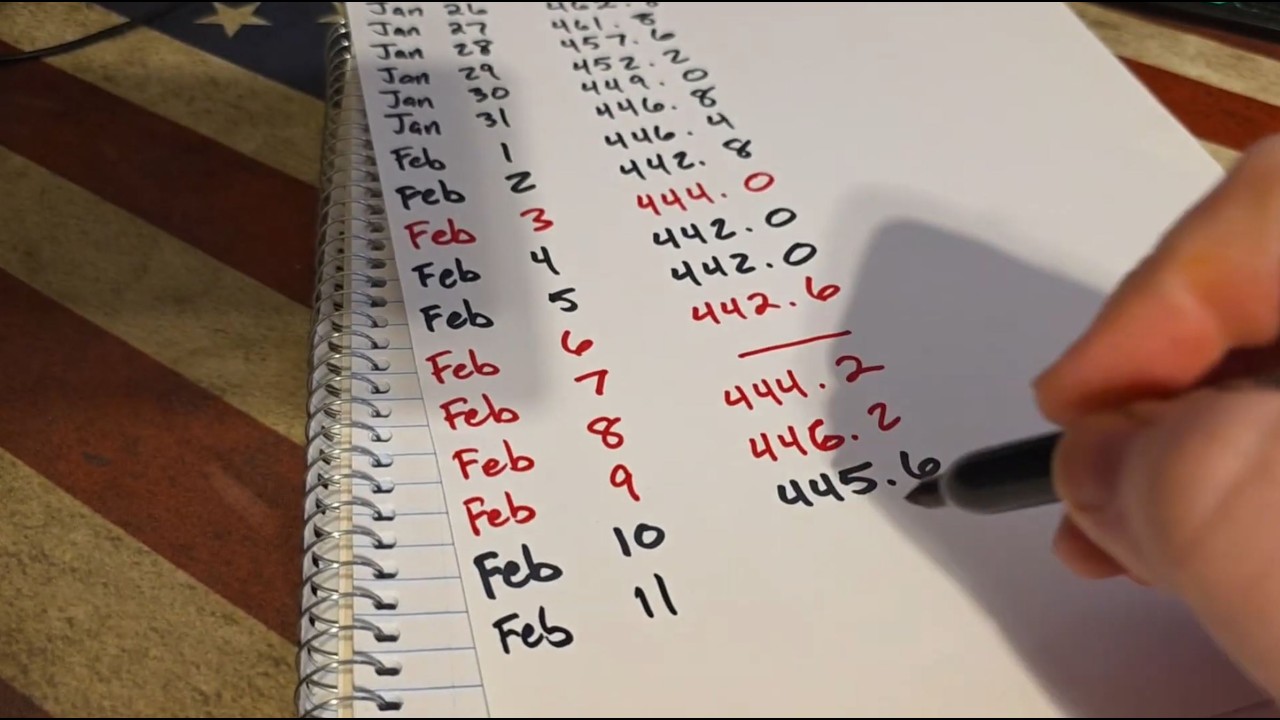 Jan 26
Jan 27 461.8
Jan 28 457.6
Jan 29 452.2
Jan 30 449.0
Jan 31 446.8
Feb 1 446.4
Feb 2 442.8
Feb 3 444.0
Feb 4 442.0
Feb 5 442.0
Feb 6 442.6
Feb 7 —
Feb 8 444.2
Feb 9 446.2
Feb 10 445.6
Feb 11